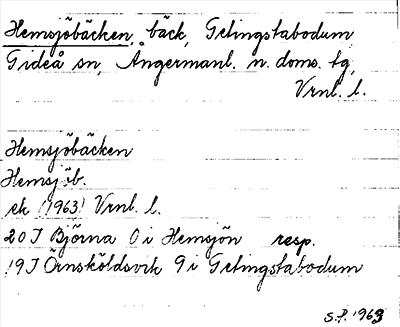 Hemsjöbäcken, bäck, Getingstabodum
Gideå sn, Ångermanl. n. doms. tg,
Vrnl. l.
Hemsjöbäcken
Hemsjöb.
ek (1963) Vrnl. l.
20J Björna 0 i Hemsjön resp.
19J Örnsköldsvik 9 i Getingstabodum
S.P. 1963